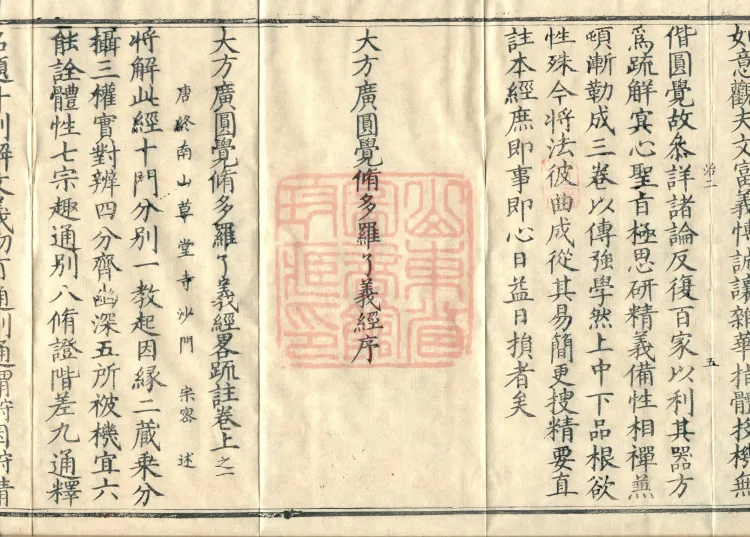 如意觀夫文富義愽誠讓雜華指體投機無
偕圓覺故叅詳諸論反復百家以利其器方
爲疏解寘心聖旨極思研精義備性相禪兼
頓漸勒成三卷以傳強學然上中下品根欲
性殊今將法彼曲成從其易簡更搜精要直
註本經庶即事即心日益日損者矣
治二
五
大方廣圓覺脩多羅了義經序
大方廣圓覺脩多羅了義經畧䟽註卷上之一
唐終南山草堂寺沙門 宗密 述
將解此經十門分別一教起因緣二藏乗分
攝三權實對辨四分齊幽深五所被機宜六
能詮體性七宗趣通別八脩證階差九通釋
名題十別解文義初有通別通謂